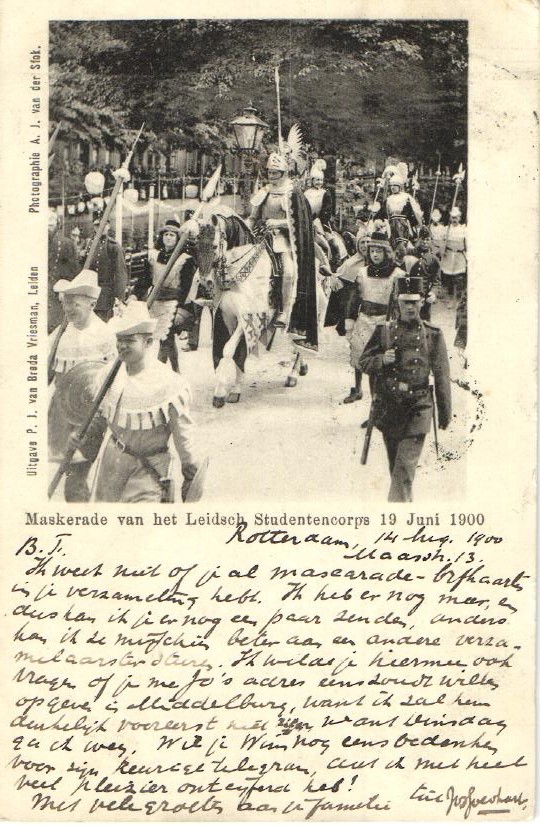 Photographie A. J. van der Stok.
Uitgave P. J. van Breda Vriesman, Leiden
Maskerade van het Leidsch Studentencorps 19 Juni 1900
Rotterdam, 14 Aug. 1900
B. T. Maasstr. 13.
Ik weet niet of je al mascarade-brfkaarten
in je verzameling hebt. Ik heb er nog meer, en
dus kan ik je er nog een paar zenden, anders
kan ik ze misschien beter aan een andere verza-
melaarster sturen. Ik wilde je hiermee ook
vragen of je me Jo's adres eens zoudt willen
opgeven in Middelburg, want ik zal hem
denkelijk vooreerst niet zien, want Dinsdag
ga ik weg. Wil je Wim nog eens bedanken
voor zijn keurige telegram, dat ik met heel
veel pleizier ontcijferd heb!
Met vele groeten aan je familie